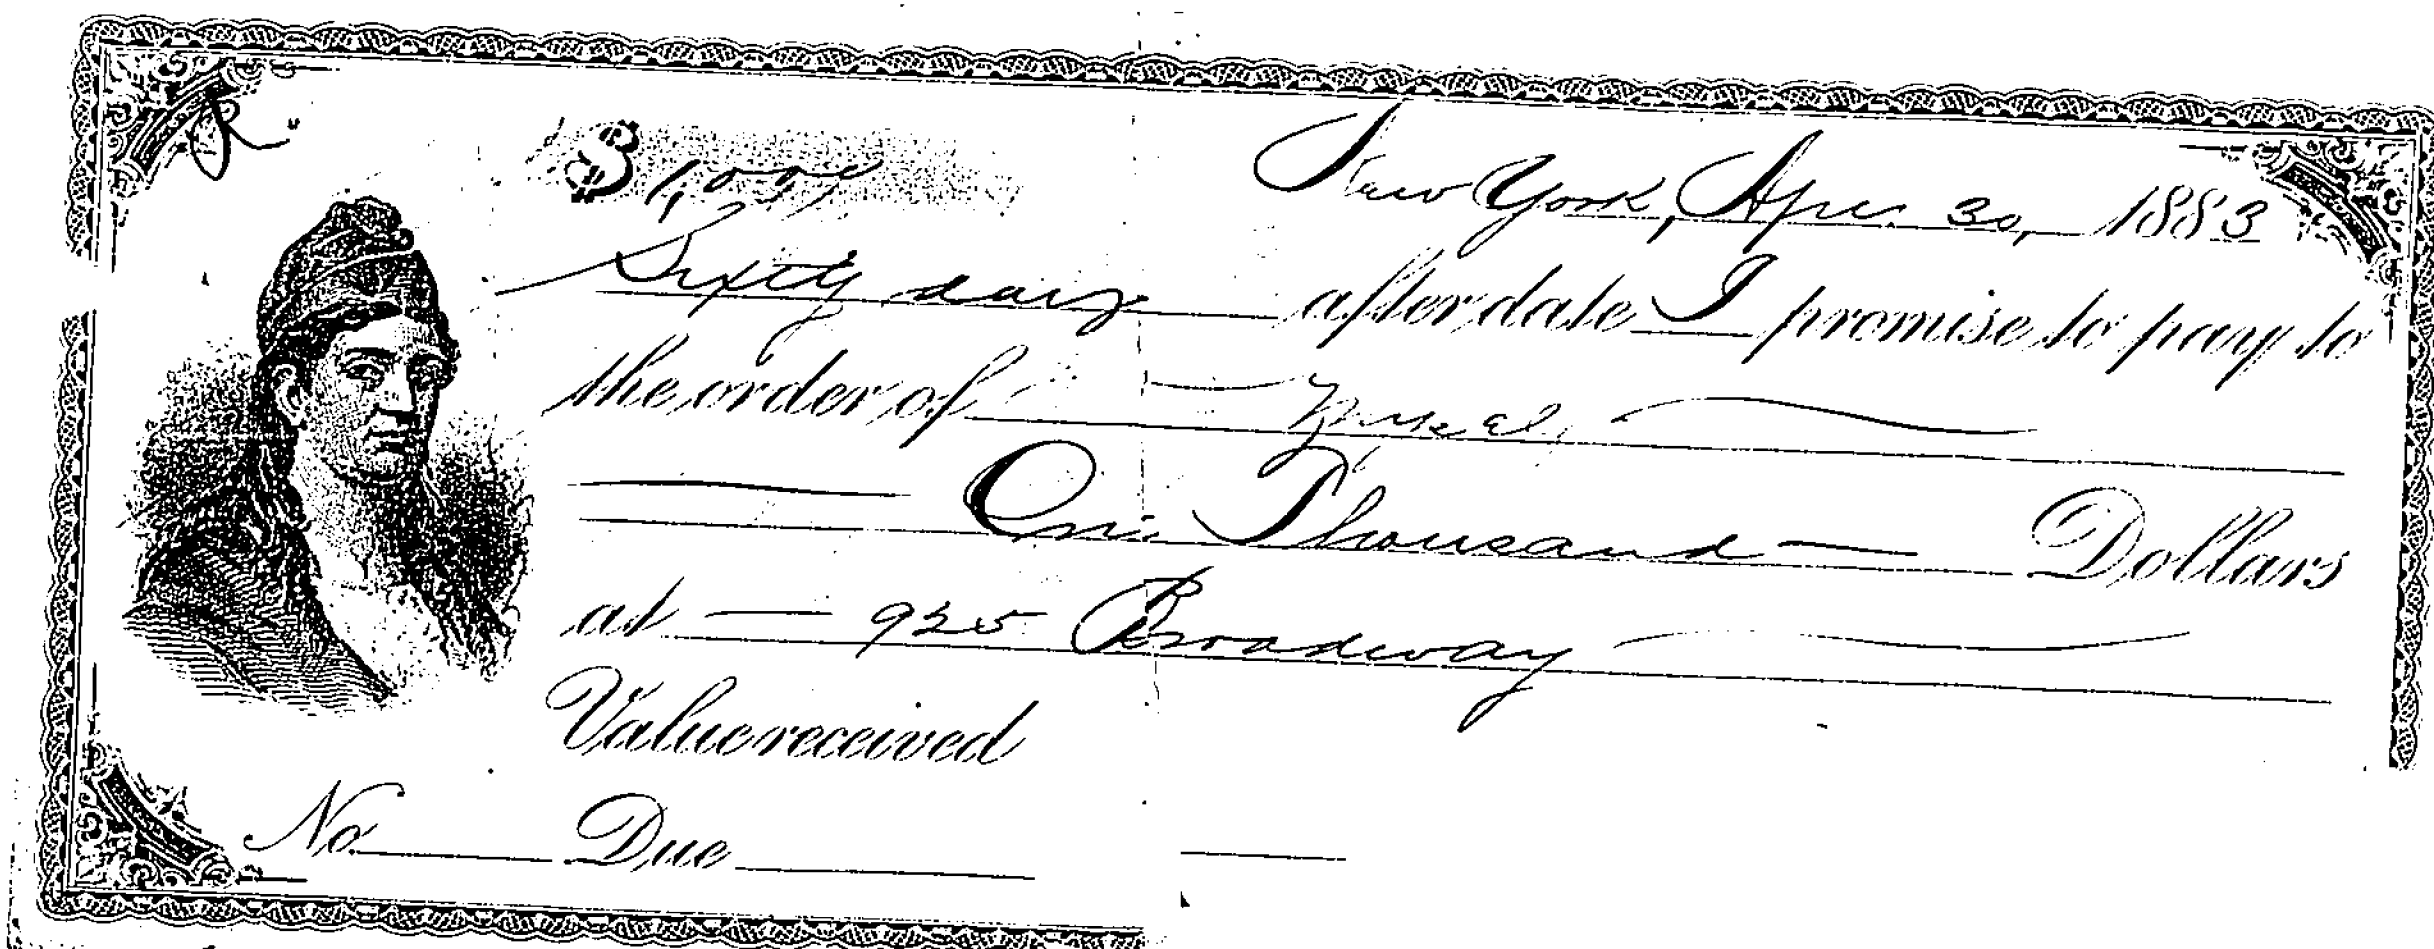 $ 1,000
New York, Apr. 30, 1883
Sixty days after date I promise to pay to
the order of myself
One Thousand Dollars
at 925 Broadway
Value received
No. Due